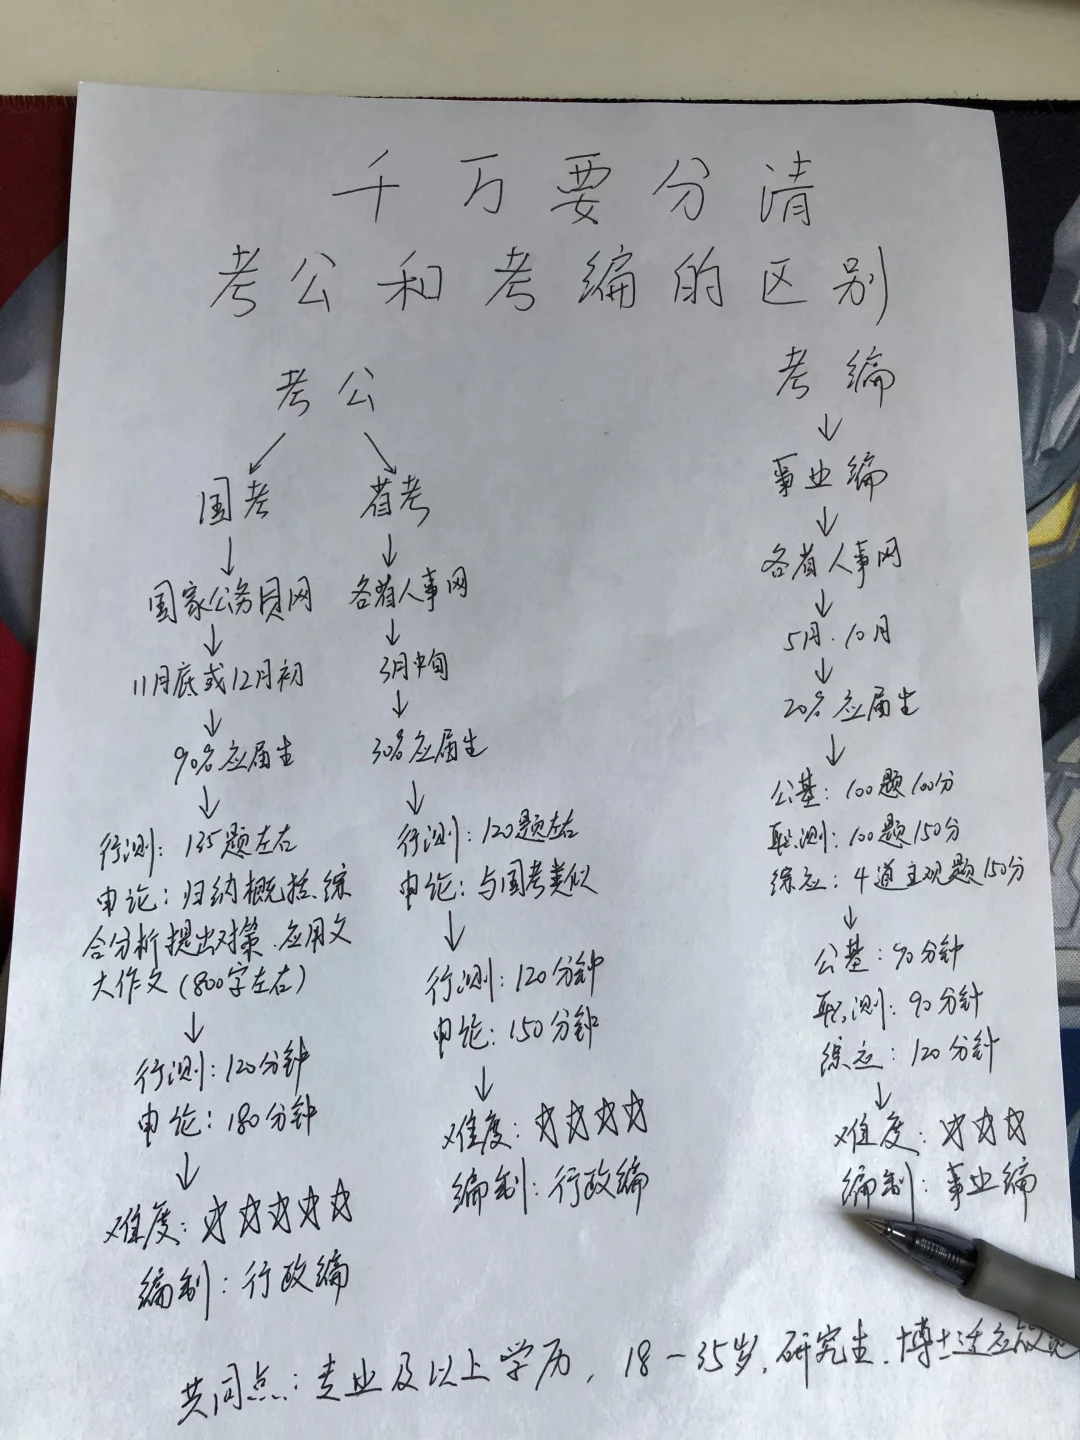 千万要分清
考公和考编的区别
考公
国考
国家公务员网
11月底或12月初
90%应届生
行测：135题左右
申论：归纳概括、综
合分析提出对策、应用文
大作文（800字左右）
行测：120分钟
申论：180分钟
难度：☆☆☆☆☆
编制：行政编
省考
各省人事网
3月中旬
30%应届生
行测：120题左右
申论：与国考类似
行测：120分钟
申论：150分钟
难度：☆☆☆☆
编制：行政编
考编
事业编
各省人事网
5月、10月
20%应届生
公基：100题100分
职测：100题150分
综应：4道主观题150分
公基：90分钟
职测：90分钟
综应：120分钟
难度：☆☆☆
编制：事业编
共同点：专业及以上学历，18-35岁，研究生、博士适应放宽